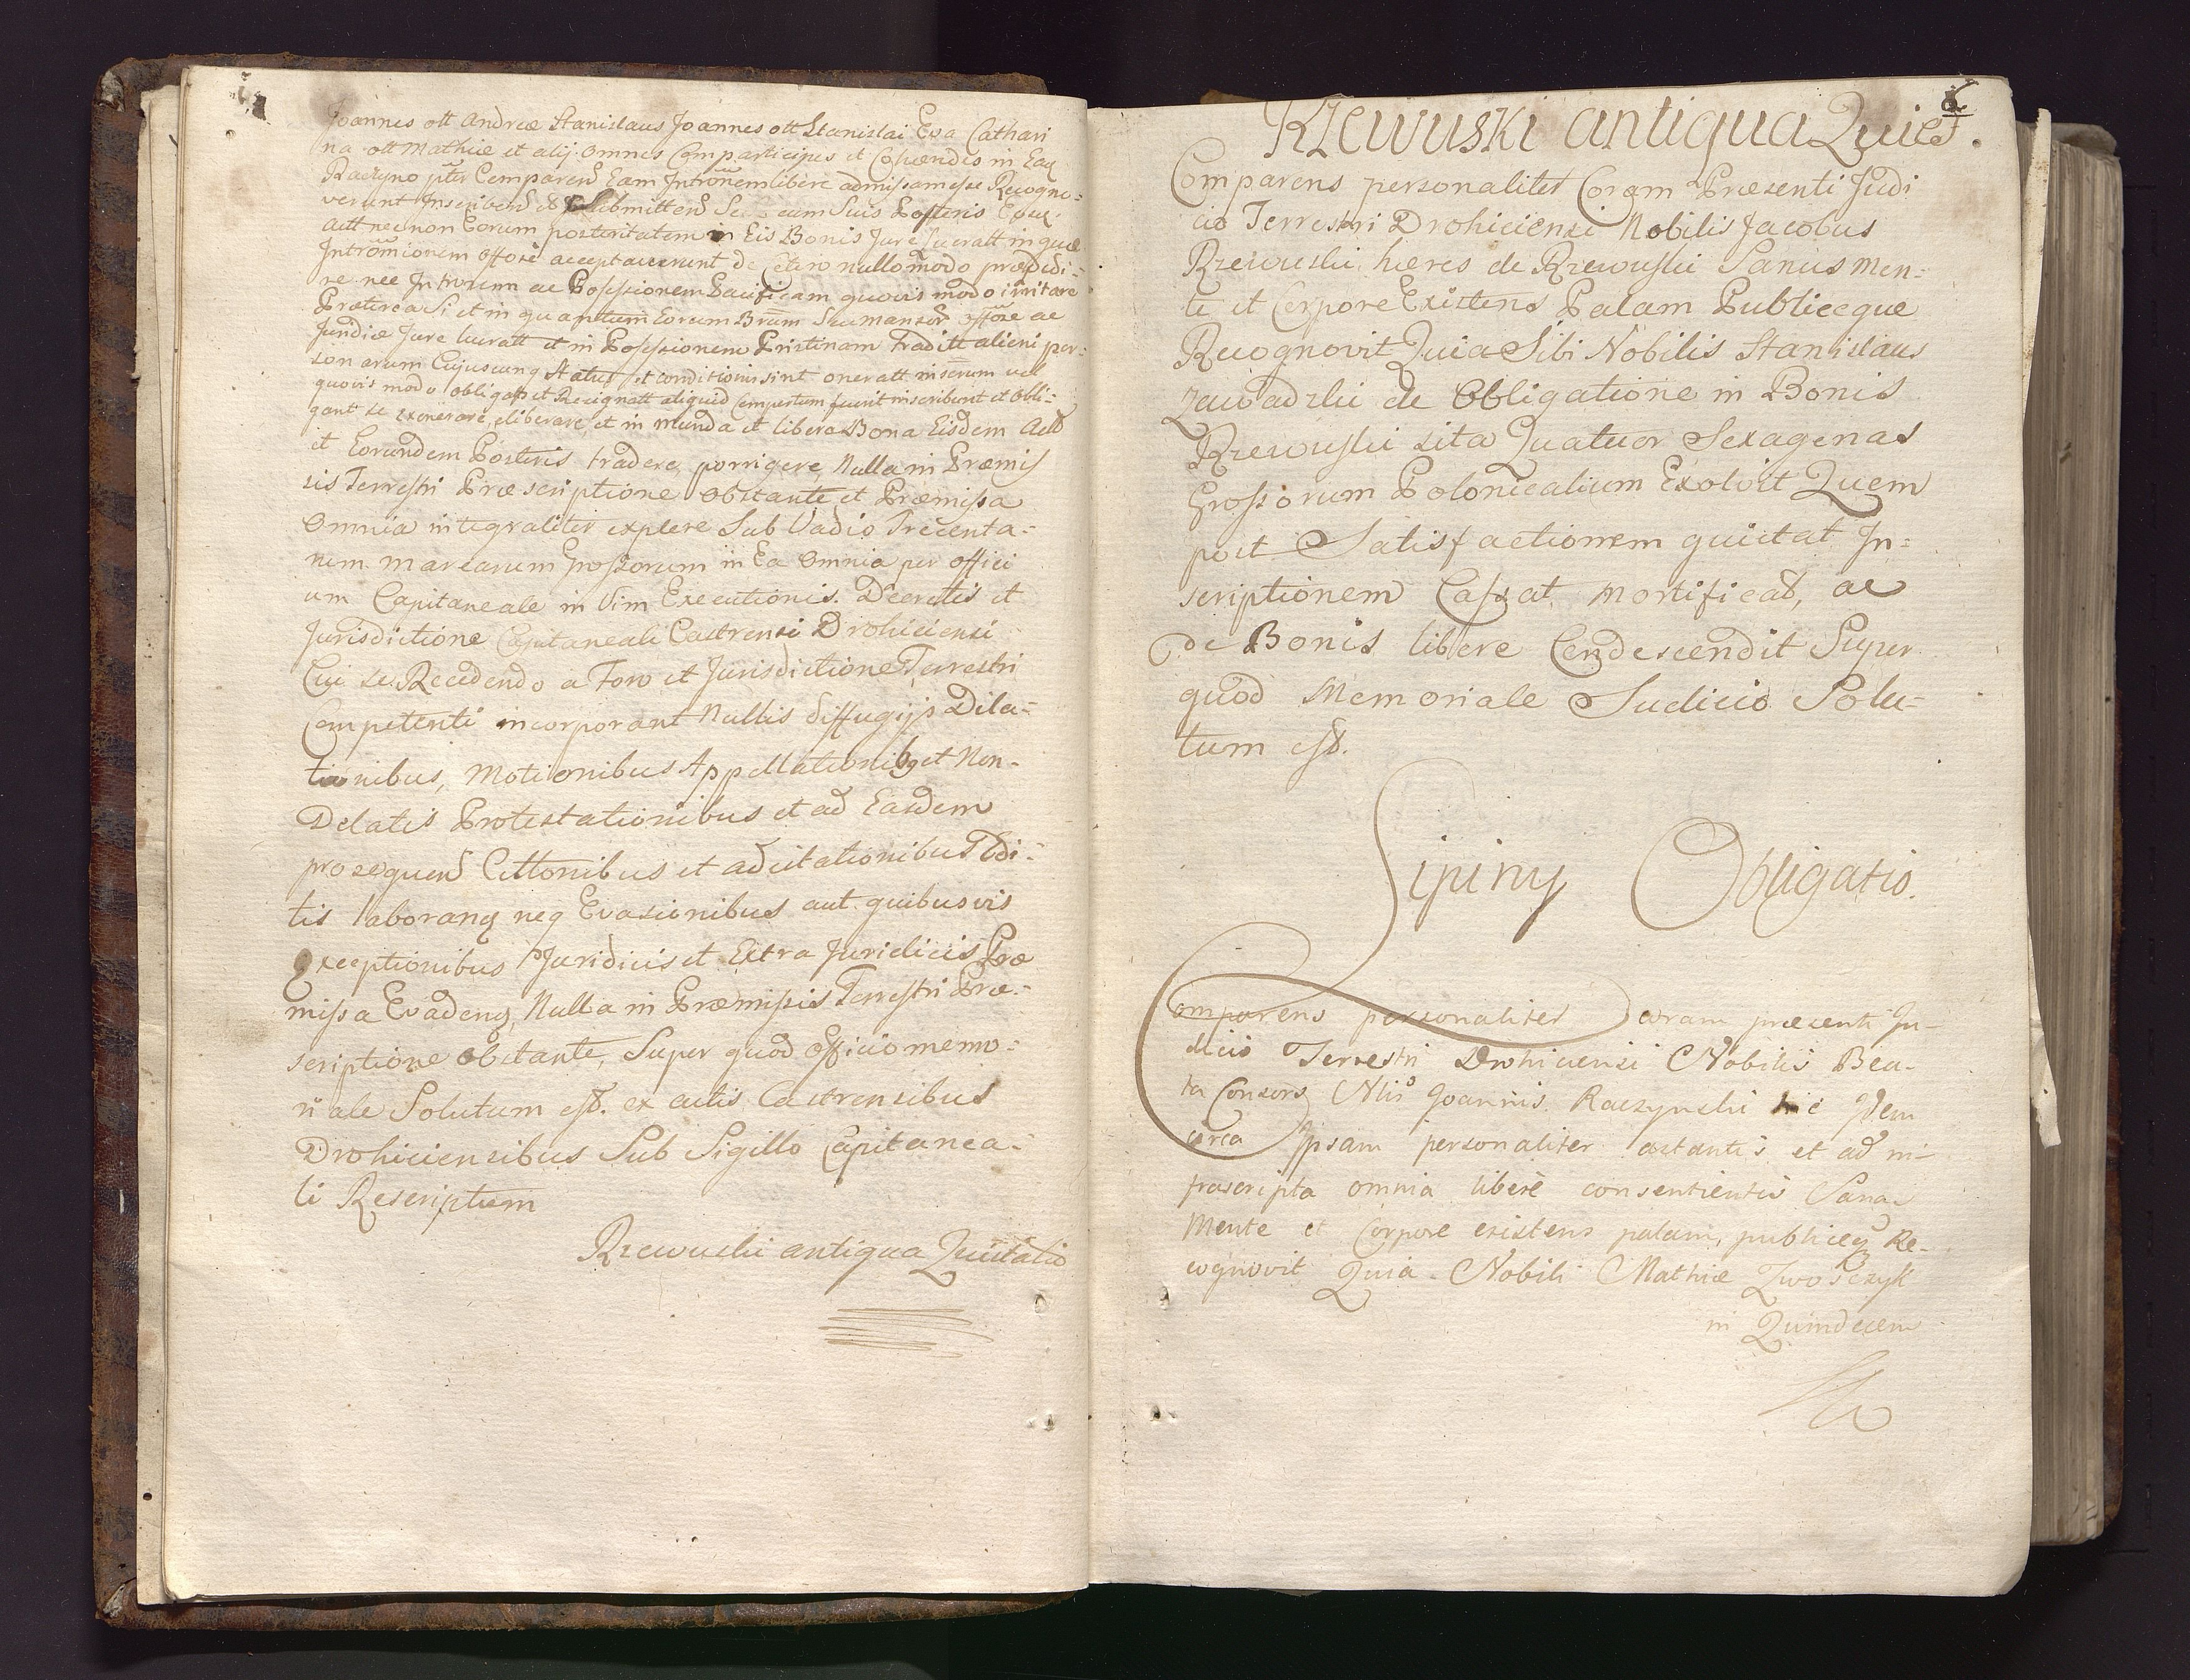 Joannes olt Andreæ Stanislaus Joannes olt Stanislai Eva Cathari
na olt Mathiæ et alij omnes Comparticipes et Cohæredes in Eaq
Raczyno pter Comparend Eam Intronem libere admissam esse Recogno-
verunt Inscribend et Submittend Se cum Suis Posteris
Altt necnon Eorum posteritatem in Eis Bonis Jure lucratt in quæ
Intromionem offose acceptaverunt de Cetero nullo modo præpedi-
re nec Intronem ac Possessionem Pacificam quovis modo irritare
Præterea Si et in quantum Eorum Brum Seu mansor offose ac
Juridicæ Jure lucratt et in Possessionem Pristinam Traditt alieni per-
sonarum Cujuscunq Status et conditionis sint oneratt inserum vel
quovis modo obligatt et Resignatt aliquid Compertum fuerit inscribunt et obli-
gant se exonerare, eliberare, et in munda et libera Bona Eisdem Actt
et Eorundem Posteris tradere, porrigere, Nulla in Præmis
sis Terrestri Præscriptione obstante et Præmissa
Omnia integraliter explere Sub Vadio Trecenta-
rum marcarum Grossorum in Ea Omnia per offici
um Capitaneale in Vim Executionis. Decretis et
Jurisdictione Capitaneali Castrensi Drohiciensi
Cui se Recedendo a Foro et Jurisdictione Terrestri
Competenti incorporant Nullis diffugijs Dila-
tionibus, Motionibus Appellationibg et Non-
Delatis Protestationibus et ad Easdem
prosequend Cittonibus et adcitationibus Edi-
tis laborang neq Evasionibus aut quibusvis
Exceptionibus Juridicis et Extra Juridicis Præ
missa Evadeng, Nulla in Præmissis Terrestri Præ-
scriptione Obstante, Super quod Officio memo-
riale Solutum est. ex actis Castrensibus
Drohiciensibus Sub Sigillo Capitanea-
li Rescriptum
Rzewuski antiqua Quietatio
6
Rzewuski antiqua Quiet.
Comparens personaliter Coram Præsenti Judi
cio Terrestri Drohiciensi Nobilis Jacobus
Rzewuski hæres de Rzewuski Sanus Men-
te et Corpore Existens Palam Publiceque
Recognovit Quia Sibi Nobilis Stanislaus
Zawadzki de Obligatione in Bonis
Rzewuski sita Quatuor Sexagenas
Grossorum Polonicalium Exolvit Quem
post Satisfactionem quietat In-
scriptionem Cassat, mortificat, ac
de Bonis libere Condescendit Super
quod Memoriale Judicio Solu-
tum est.
Lipiny Obligatio.
Comparens personaliter Coram præsenti Ju-
dicio Terrestri Drohiciensi Nobilis Bea-
ta Consors Nlis Joannis Raczynski hic Idem
circa Ipsam personaliter astantis et ad in-
frascripta omnia liberè consentientis Sana
Mente et Corpore existens palam, publiceq Re-
cognovit Quia Nobili Mathiæ Zwoiczyk
in Quindecem